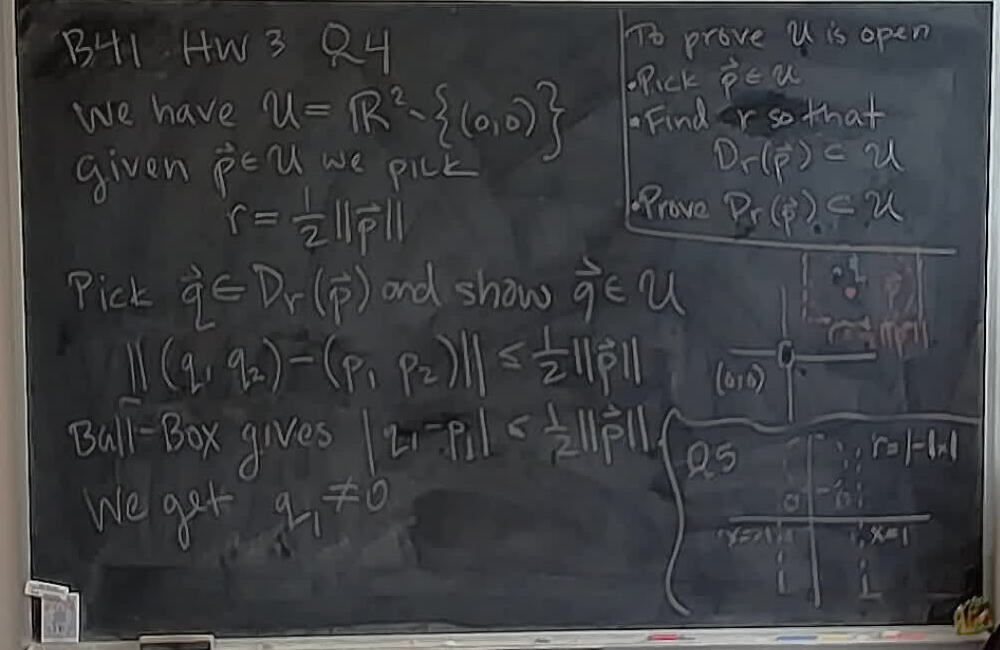 B41 HW 3 Q4
We have U = ℝ² \ {(0,0)}
given p⃗ ∈ U we pick
r = ½||p⃗||
Pick q⃗ ∈ Dr(p⃗) and show q⃗ ∈ U
||(q₁ q₂) - (p₁ p₂)|| ≤ ½||p⃗||
Ball-Box gives |q₁-p₁| < ½||p⃗||
We get q₁ ≠ 0
To prove U is open
• Pick p⃗ ∈ U
• Find r so that
Dr(p⃗) ⊂ U
• Prove Dr(p⃗) ⊂ U
(0,0)
Q5
r=1-|x|
x=-1
x=1